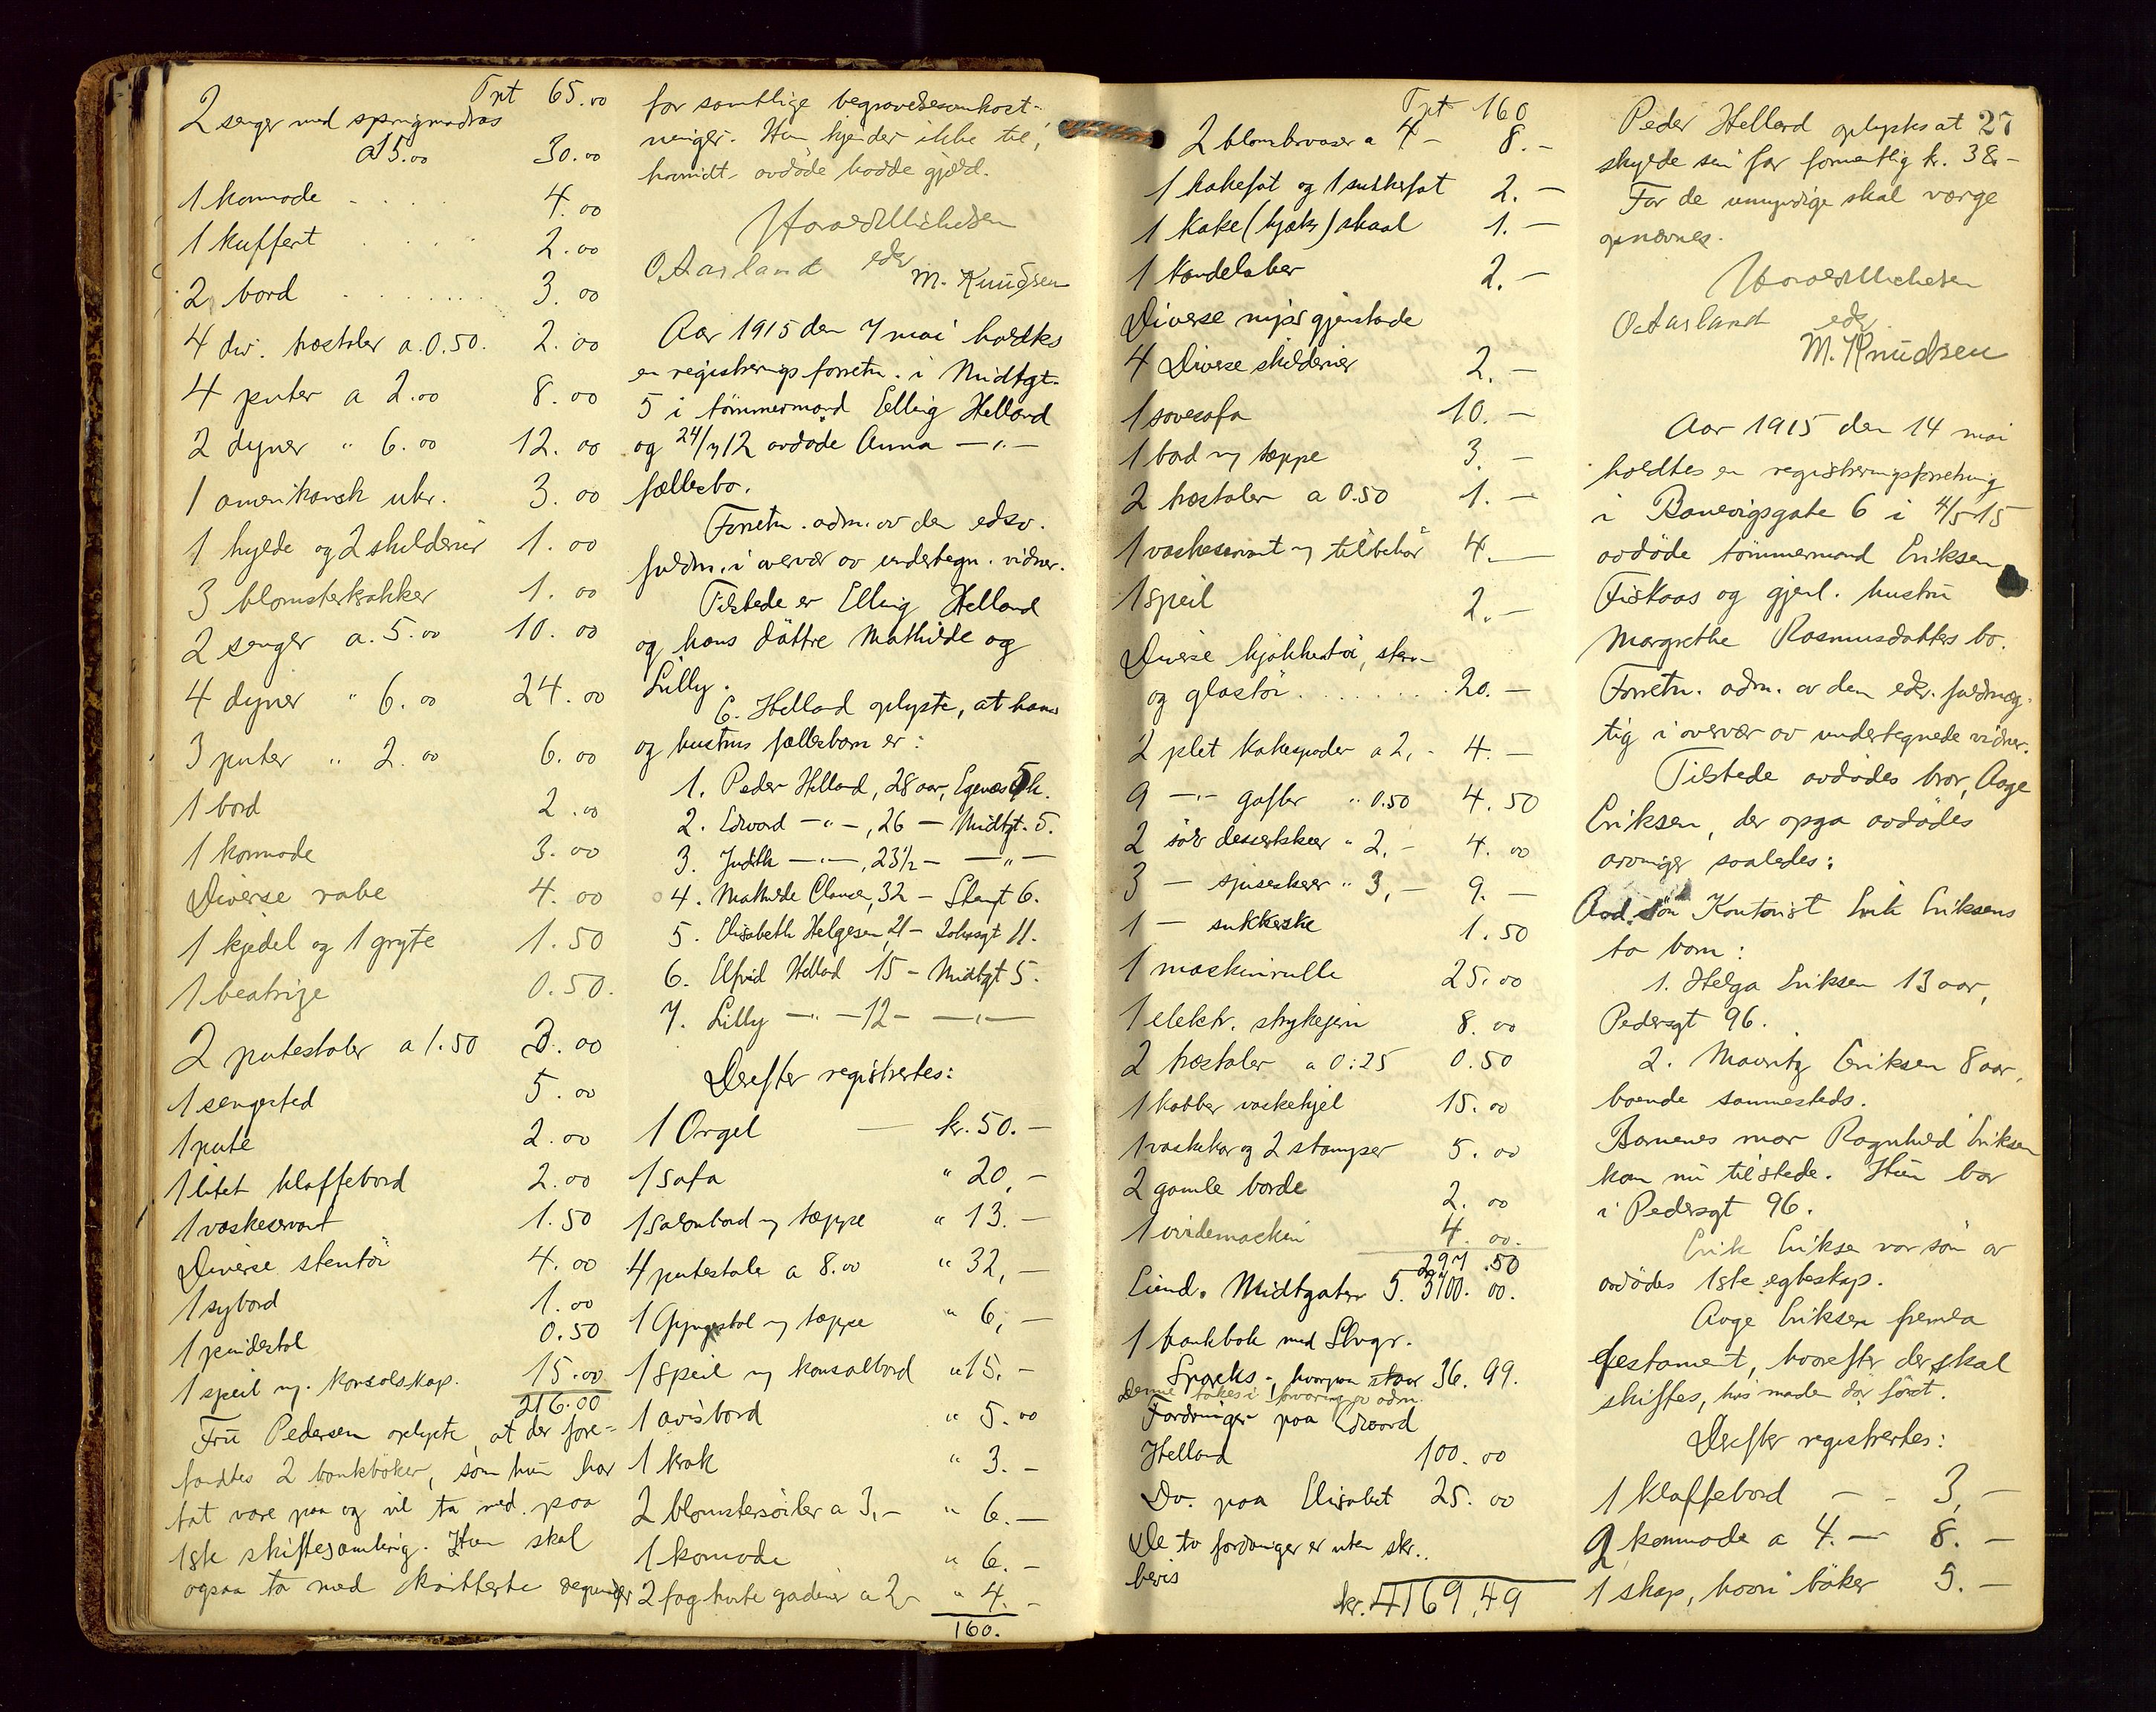 Trpt 65.00
2 senger med springmadras
a 15.00 30.00
1 komode 4.00
1 kuffert 2.00
2 bord 3.00
4 div. træstoler a 0.50. 2.00
4 puter a 2.00 8.00
2 dyner " 6.00 12.00
1 amerikansk uhr. 3.00
1 hylde og 2 skilderier 1.00
3 blomsterkrukker 1.00
2 senger a. 5.00 10.00
4 dyner " 6.00 24.00
3 puter " 2.00 6.00
1 bord 2.00
1 komode 3.00
Diverse 4.00
1 kjedel og 1 gryte 1.50
1 0.50.
2 putestoler a 1.50 3.00
1 sengested 5.00
1 pute 2.00
1 litet klaffebord 2.00
1 vaskeservant 1.50
Diverse stentöi 4.00
1 sybord 1.00
1 pindestol 0.50
1 speil m. konsolskap. 15.00
216.00
Fru Pedersen oplyste, at der fore-
fandtes 2 bankböker, som hun har
tat vare paa og vil ta med paa
1ste skiftesamling. Hun skal
ogsaa ta med kvitterte regninger
for samtlige begravelsesomkost-
ninger. Hun kjender ikke til,
hvorvidt avdöde hadde gjæld.
Harald Michelsen
O. Aarland edsv M. Knudsen
Aar 1915 den 7 mai holdtes
en registreringsforretn. i Midtgt.
5 i tömmermand Elling Helland
og 24/7 12 avdöde Anna —"—
fællesbo.
Forretn. adm. av den edsv.
fuldm. i overvær av undertegn. vidner.
Tilstede er Elling Helland
og hans döttre Mathilde og
Lilly.
E. Helland oplyste, at hans
og hustrus fællesbarn er:
1. Peder Helland, 28 aar, Egenæs
2. Edvard —"—, 26 — Midtgt. 5.
3. Judith —"—, 23½ — —"—
4. Mathilde Clausen, 32 — 6.
5. Elisabeth Helgesen, 21 — 11.
6. Elfrid Helland 15 — Midtgt 5.
7. Lilly —"— 12 — —"—
Derefter registrertes:
1 Orgel — kr. 50.—
1 sofa " 20,—
1 salonbord m tæppe " 13.—
4 putestole a 8.00 " 32,—
1 Gyngestol m tæppe " 6,—
1 speil m konsolbord " 15.—
1 avisbord " 5.00
1 krak " 3.—
2 blomstersöiler a 3,— " 6.—
1 komode " 6.—
2 fag hvite gardiner a 2— " 4.—
160.
Trpt 160
2 blomstervaser a 4— 8.—
1 kakefat og 1 sukkerfat 2.—
1 Kake(kjæks)skaal 1.—
1 Kandelaber 2.—
Diverse nipsgjenstande
4 Diverse skilderier 2.—
1 sovesofa 10.—
1 bord m tæppe 3.—
2 træstoler a 0.50 1.—
1 vaskeservant m tilbehör 4.—
1 speil 2.—
Diverse kjökkentöi, sten-
og glastöi 20.—
2 plet Kakespader a 2,— 4.—
9 —"— gafler " 0.50 4.50
2 sölv dessertskeer " 2,— 4.00
3 — spiseskeer " 3,— 9.—
1 — sukkerske 1.50
1 maskinrulle 25.00
1 elektr. strykejern 8.00
2 træstoler a 0:25 0.50
1 Kobber vaskekjel 15.00
1 vaskekar og 2 stamper 5.00
2 gamle borde 2.00
1 vridemaskin 4.00.
297.50
Eiend. Midtgaten 5. 3700.00.
1 bankbok med Stvgr.
Sparek. , hvorpaa staar 36.99.
Denne takes i forvaring av adm.
Fordringer paa Edvard
Helland 100.00
Do. paa Elisabet 25.00
De to fordringer er uten skr.
bevis
kr. 4169,49
27
Peder Helland oplystes at
skylde sin far formentlig kr. 38.—
For de umyndige skal værge
opnævnes.
Harald Michelsen
O. Aarland edsv
M. Knudsen
Aar 1915 den 14 mai
holdtes en registreringsforretning
i Banevigsgate 6 i 4/5 15
avdöde tömmermand Eriksen
Fiskaas og gjenl. hustru
Margrethe Rasmusdatters bo.
Forretn. adm. av den edsv. fuldmæg-
tig i overvær av undertegnede vidner.
Tilstede avdödes bror, Aage
Eriksen, der opga avdödes
arvinger saaledes:
Avd. sön Kontorist Erik Eriksens
to barn:
1. Helga Eriksen 13 aar,
Pedersgt 96.
2. Mauritz Eriksen 8 aar,
boende sammesteds.
Barnenes mor Ragnhild Eriksen
kom nu tilstede. Hun bor
i Pedersgt 96.
Erik Eriksen var sön av
avdödes 1ste egteskap.
Aage Eriksen fremla
testament, hvorefter der skal
skiftes, hvis manden dör först.
Derefter registrertes:
1 Klaffebord — — 3,—
2 kommode a 4.— 8.—
1 skap, hvori böker 5.—